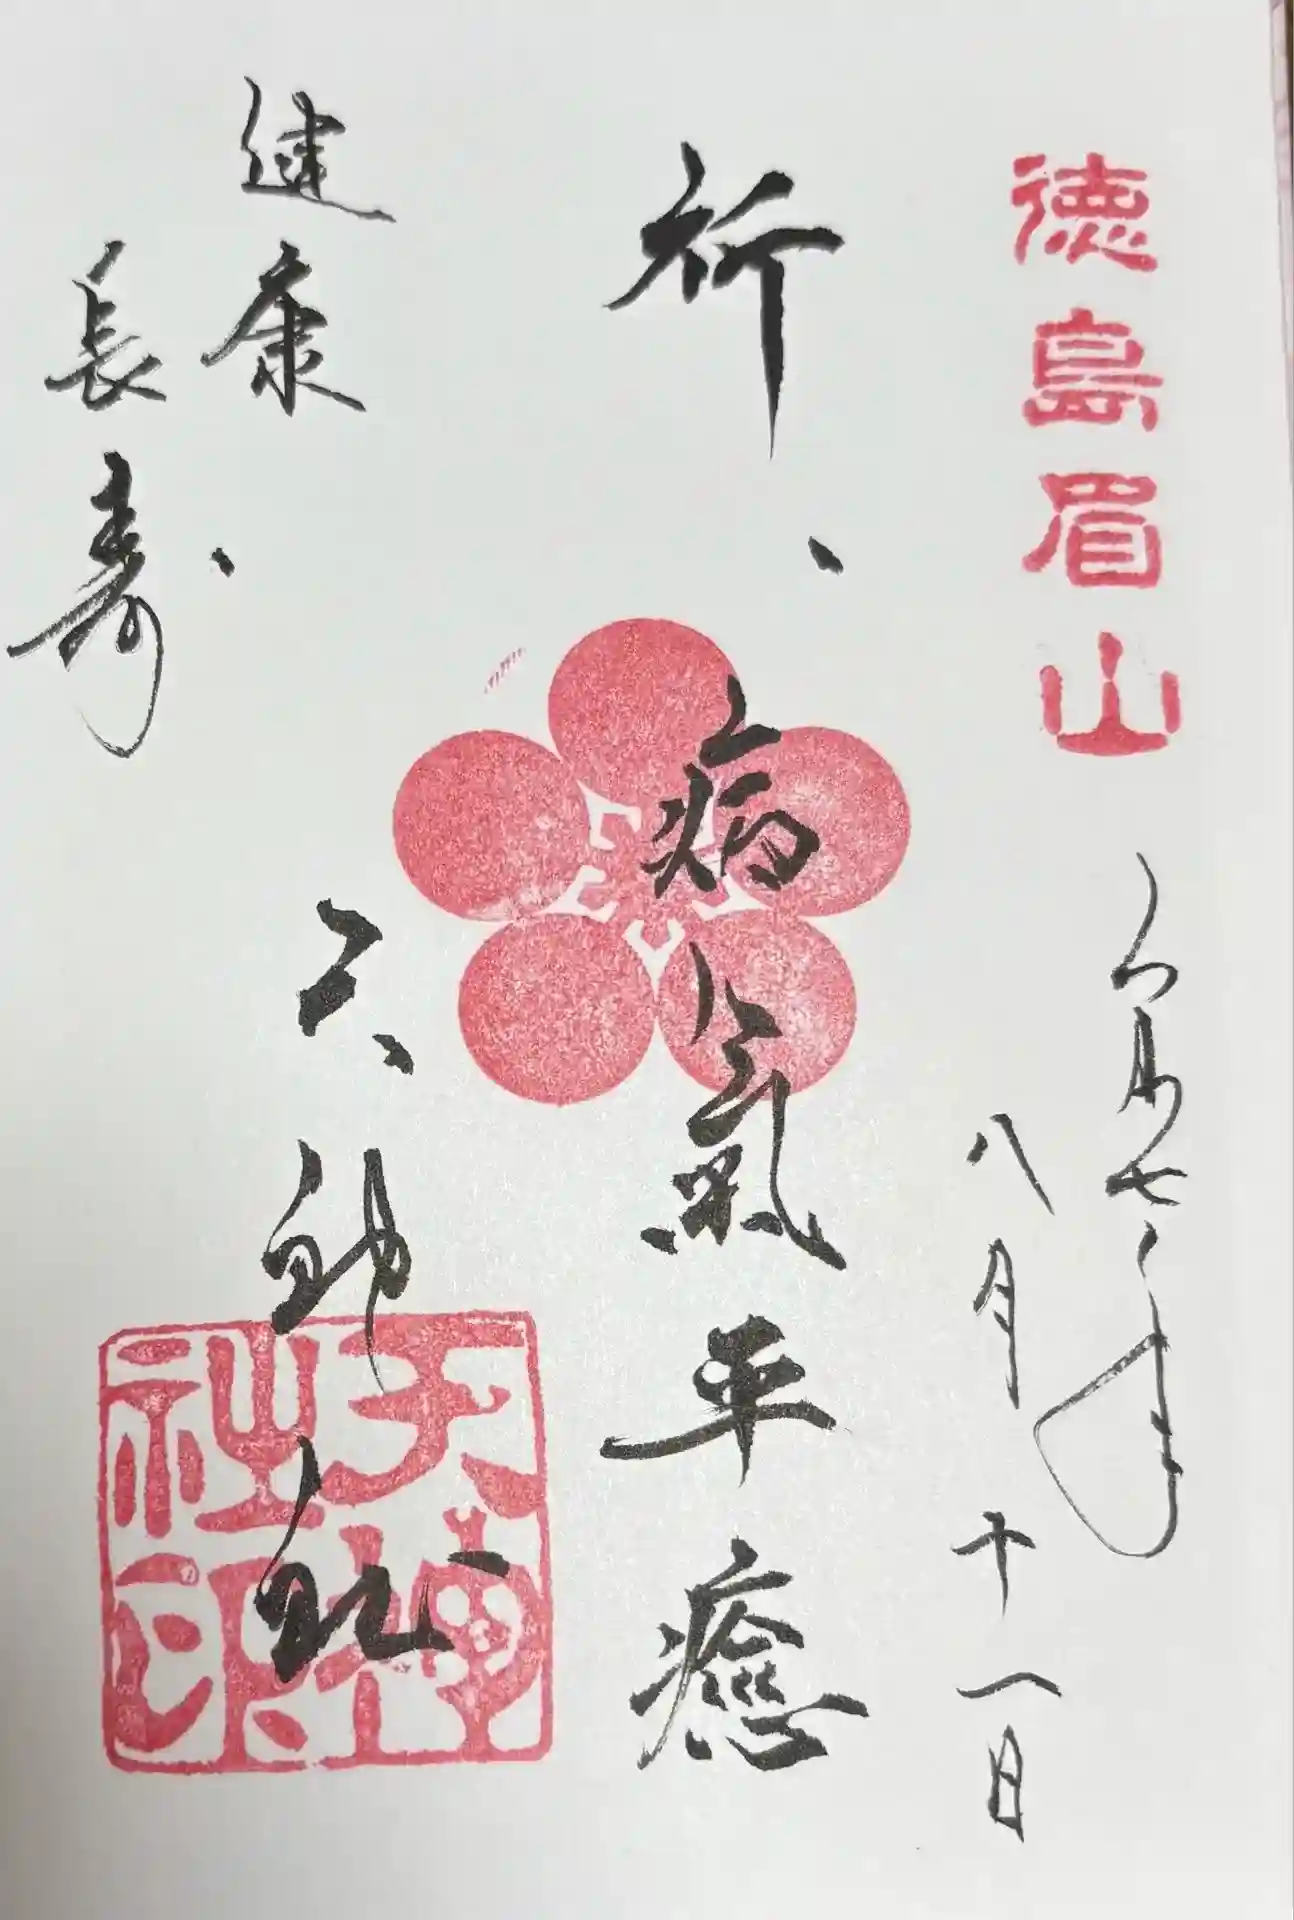 徳島眉山
令和七年
八月十一日
祈、
病氣平癒
健康、
長寿
天神社
天神社印